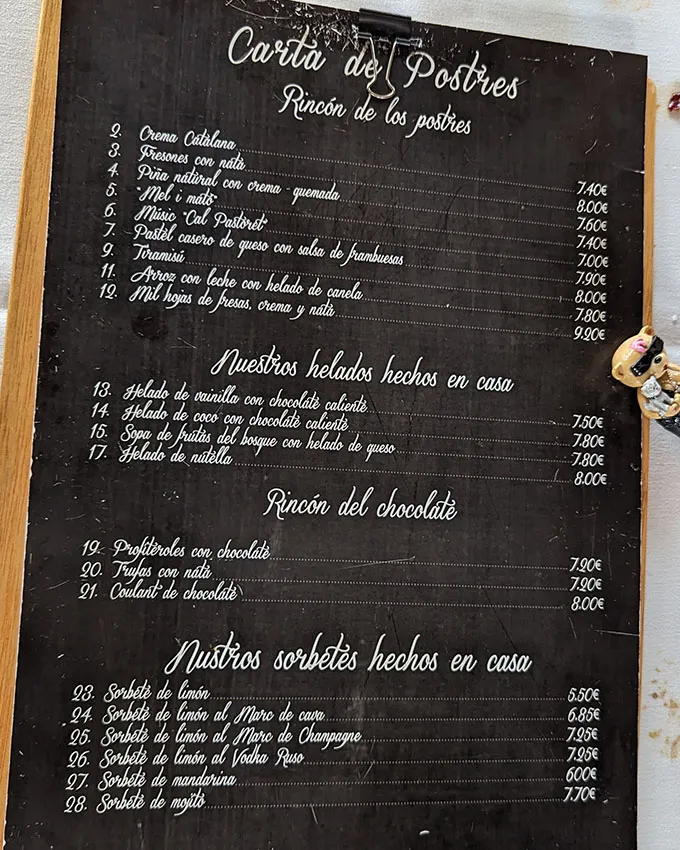 Carta de Postres
Rincón de los postres
2. Crema Catalana 7.40€
3. Fresones con nata 8.00€
4. Piña natural con crema - quemada 7.60€
5. "Mel i mató" 7.40€
6. Músic "Cal Pastoret" 7.00€
7. Pastel casero de queso con salsa de frambuesas 7.90€
9. Tiramisú 8.00€
11. Arroz con leche con helado de canela 7.80€
12. Mil hojas de fresas, crema y nata 9.20€
Nuestros helados hechos en casa
13. Helado de vainilla con chocolate caliente 7.50€
14. Helado de coco con chocolate caliente 7.80€
15. Sopa de frutas del bosque con helado de queso 7.80€
17. Helado de nutella 8.00€
Rincón del chocolate
19. Profiteroles con chocolate 7.20€
20. Trufas con nata 7.20€
21. Coulant de chocolate 8.00€
Nustros sorbetes hechos en casa
23. Sorbete de limón 5.50€
24. Sorbete de limón al Marc de cava 6.85€
25. Sorbete de limón al Marc de Champagne 7.25€
26. Sorbete de limón al Vodha Ruso 7.25€
27. Sorbete de mandarina 600€
28. Sorbete de mojito 7.70€